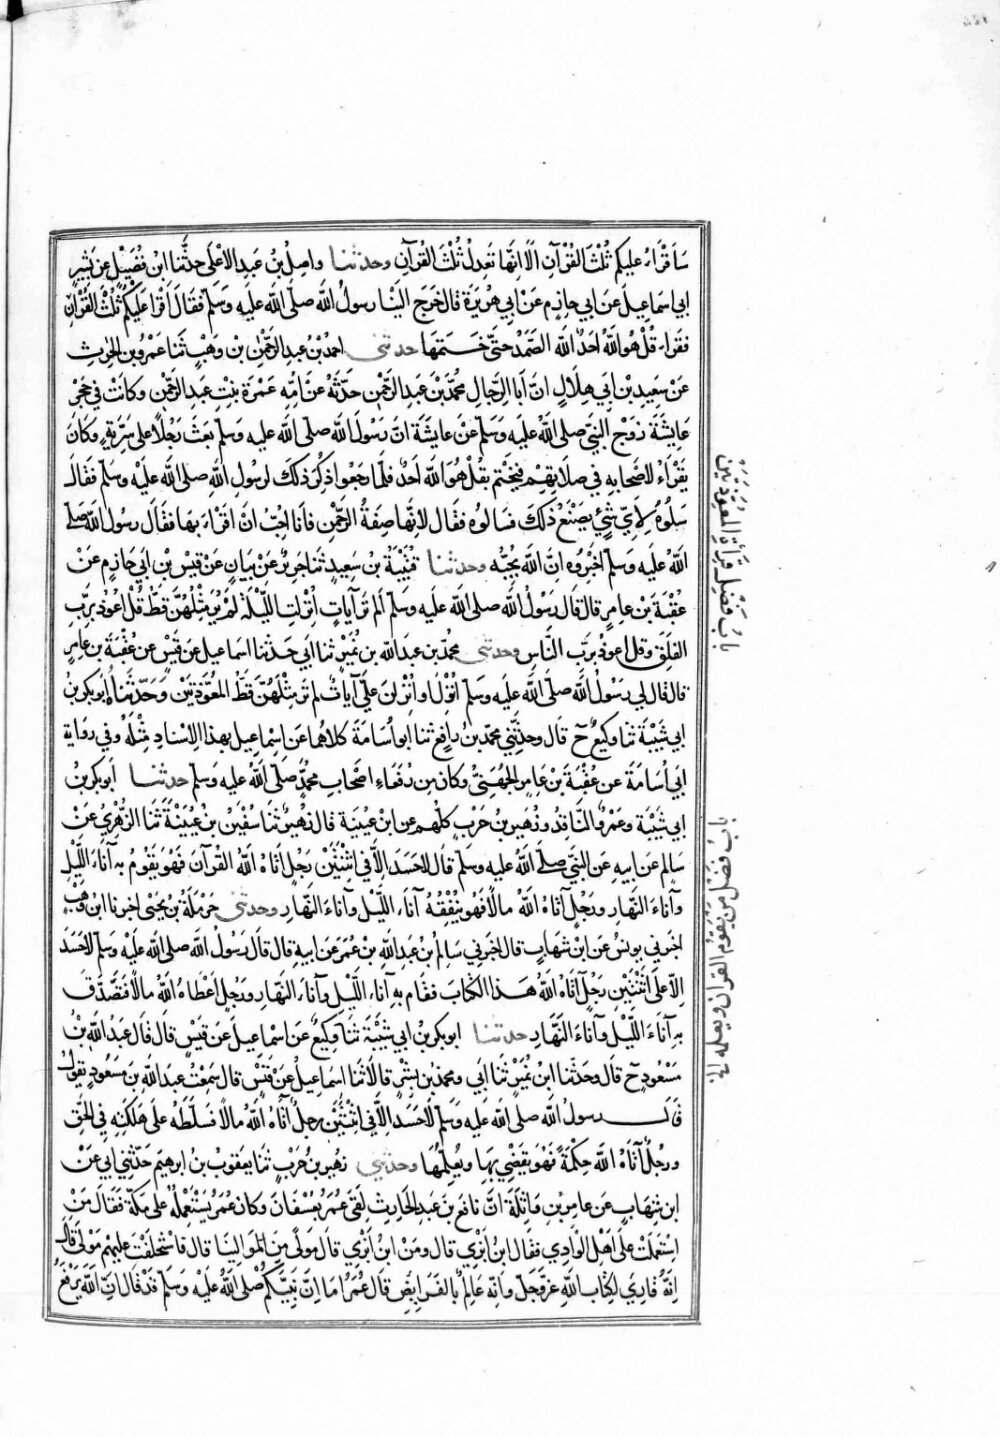 سَاَقْرَاءُ عليكم ثُلثَ القُرْآنِ اَلاَ اِنَّهَا تَعدِلُ ثُلثَ القُرآنِ وحدثنا واصِلُ بْنُ عبدِ الاَعْلَى حدَّثنا ابْنُ فُضَيْلٍ عَنْ بَشِيرٍ
ابي اسمَاعِيلَ عن ابي حازِمٍ عَنْ ابي هُرَيْرَةَ قال خَرَجَ الَيْنا رسولُ اللّه صلّى اللّهُ عليهِ وسَلّم فقالَ اَقْرَا عَلَيْكُم ثُلثَ القُرْآنِ
فقَراءَ قُلْ هُوَ اللّهُ اَحَدٌ اَللّه الصَّمَدُ حتّى خَتمَهَا حدثنى احمدُ بْنُ عبدِ الرَّحْمٰنِ بْنِ وَهْبٍ ثَنا عَمْرُو بنُ الحٰرِثِ
عَنْ سعِيدِ بنِ ابي هِلاَلٍ انَّ اَبَا الرّجَالِ محُمّدَ بْنَ عبدِ الرَّحْمٰنِ حدّثَهُ عَنْ اُمِّهِ عَمْرَةَ بِنْتِ عبدِ الرَّحْمٰنِ وكانَتْ في حَجْرِ
عَايِشَةَ زوْجِ النّبيّ صلى اللّهُ عليهِ وَسَلّم عَنْ عايِشَةَ انَّ رَسولَ اللّه صلى اللّه عليهِ وسلّم بَعَثَ رَجُلًا على سَرِيَّةٍ وكانَ
يَقْرَاءُ لاَصْحابهِ في صلاَتِهِمْ فيَخْتِمُ بقُلْ هُوَ اللّهُ اَحدٌ فلَمّا رجَعُوا ذكِرَ ذلكَ لرسُولِ اللّهِ صلى اللّه عَلَيْهِ وسَلم فَقَالَ
سَلُوهُ لِاَيِّ شَئٍ يَصْنَعُ ذلكَ فسَالوُه فقال لانِّها صِفَةُ الرَّحْمٰنِ فاَنا اُحِبُّ انْ اَقْرَاءَ بهَا فقالَ رسولُ اللّه صلى
اللّهُ عليهِ وسَلّم اَخْبِرُوه انَّ اللّهَ يُحِبُّه وحدثنا قُتَيْبَةُ بْنُ سَعِيدٍ ثنا جرِيرٌ عَنْ بيانٍ عَنْ قَيْسِ بْنِ ابي حَازِمٍ عَنْ
عُقْبَةَ بنِ عامِرٍ قال قالَ رسُولُ اللّهِ صلى اللّه عليهِ وسَلّم اَلم ترَ آياتٍ اُنْزِلَتِ اللّيْلَةَ لمْ يُرَ مِثْلُهُنَّ قَطُّ قُلْ اعُوذ برَبِّ
الفَلَقِ وقل اعوذُ برَبِّ النّاسِ وحدثنى محُمّدُ بن عبدِ اللّه بْن نُمَيْرٍ ثنا ابي حَدّثنا اسماعِيل عَنْ قَيْسٍ عن عُقْبَةَ بن عامِرٍ
قال قال لي رَسولُ اللّهِ صلّى اللّهُ عليه وَسَلّم اُنْزِلَ اَو اُنْزِلَتْ عَلَيّ آياتٌ لم تَرَ مِثْلَهُنّ قَطُّ المعُوّذتَيْنِ وحَدّثناه ابُو بكْرِ بْنُ
ابي شَيْبَةَ ثنا وكِيعٌ حَ قال وحدثَني محمّدُ بن رافِعٍ ثنا ابو اُسَامَةَ كلاهُما عَن اِسماعِيل بهذا الاِسْنادِ مِثلَهُ وفي روَايةِ
ابي اُسَامَةَ عن عُقْبَةَ بْنِ عَامِرٍ الجُهَنِيِّ وكانَ مِنْ رُفَعَاءِ اصْحَابِ محُمّدٍ صَلى اللّهُ عليهِ وَسَلم حدثنا ابُو بكرِ بْنُ
ابي شَيْبَةَ وعَمْرٌو النّاقِدُ وزُهَيْرُ بْنُ حَرْبٍ كلّهُم عن ابن عُيَيْنَة قال زهَيْرٌ ثنا سُفْيٰنُ بْن عُيَيْنَةَ ثَنا الزُّهْرِيُّ عَنْ
سَالِمٍ عَنْ ابيهِ عَنِ النّبيِّ صلى اللّهُ عليهِ وَسلّم قالَ لاحَسَدَ الاّ في اثْنَتَيْنِ رَجُلٍ اتَاهُ اللّهُ القُرآنَ فهوَ يَقُومُ بهِ آناءَ اللَّيْلِ
وآناءَ النّهَارِ ورَجُلٍ آتاهُ اللّهُ مالًا فهوَ يُنْفِقُهُ آناءَ اللّيْلِ وآناءَ النّهَارِ وحدثنى حَرْمَلَةُ بْنُ يَحْيٰى اخبرنا ابْنُ وَهْبٍ
اخبرني يونسُ عَنِ ابْنِ شهابٍ قالَ اخبَرني سَالِمُ بْنُ عبدِ اللّهِ بْنِ عُمَرَ عَن ابيهِ قال قالَ رسُولُ اللّهِ صلى اللّه عَلَيْهِ وسَلّم لاحَسَدَ
الاّ عَلَى اثْنَتَيْنِ رَجُلٍ آتَاهُ اللّهُ هٰذا الكِتابَ فقامَ بهِ آناءَ اللّيْلِ وآناءَ النّهارِ ورَجُلٍ اعْطاهُ اللّهُ مالًا فتَصَّدقَ
بهِ آناءَ اللّيْلِ وآناءَ النّهَارِ حدثنا ابو بكرِ بْنُ ابي شَيْبَةَ ثنا وكِيعٌ عَنْ اسْماعِيلَ عَنْ قيْسٍ قال قالَ عبدُ اللّهِ بْنُ
مَسْعُودٍ حَ قالَ وحَدّثنا ابْنُ نُمَيْرٍ ثنا ابي ومحمدُ بن بِشْرٍ قالاَ ثنا اسماعِيلُ عَنْ قَيْسٍ قال سمِعْتُ عبدَ اللّهِ بنَ مَسْعُودٍ يقولُ
قالَ رسولُ اللّهِ صلى اللّهُ عليهِ وسَلّم لاَحَسَدَ الاّ في اثْنَتَيْنِ رجلٌ اتاهُ اللّهُ مالًا فسَلّطَهُ علَى هَلَكَتِهِ فِي الحَقِّ
ورجُلٌ آتاهُ اللّه حِكْمَةً فهوَ يَقْضِي بهَا ويُعلِّمُهَا وحدثنى زهَيْرُ بنُ حَرْبٍ ثنا يعقوبُ بْن ابرهِيمَ حدّثني ابي عَنْ
ابنِ شهَابٍ عن عامِرِ بْنِ وَاثِلَةَ انَّ نافعَ بنَ عبدِ الحارِثِ لَقِيَ عُمَرَ بعُسْفَانَ وكانَ عُمَرُ يَسْتَعْمِلُهُ على مَكّةَ فقالَ مَنْ
اسْتَعمَلتَ علَى اَهْلِ الوَادِي فقال ابنُ اَبْزٰي قال ومَنْ ابنُ اَبْزٰي قال مَوْلًى مِنَ الموَاليْنا قال فاسْتَخلَفْتَ عليهِمْ مَوْلًى قال
اِنّهُ قارِيٌ لكِتابِ اللّهِ عزّ وجَلّ وانّه عالِمٌ بالفَرَايِضِ قال عُمَرُ اَمَا اِنّ نَبِيَّكُم صلى اللّهُ عليْهِ وَسَلم قدْ قالَ انّ اللّهَ يَرْفَعُ
بابُ فَضْلِ قِرَأَةِ المعُوّذتَيْن
باب فضْل من يقوم القرآن ويعلمه الخ